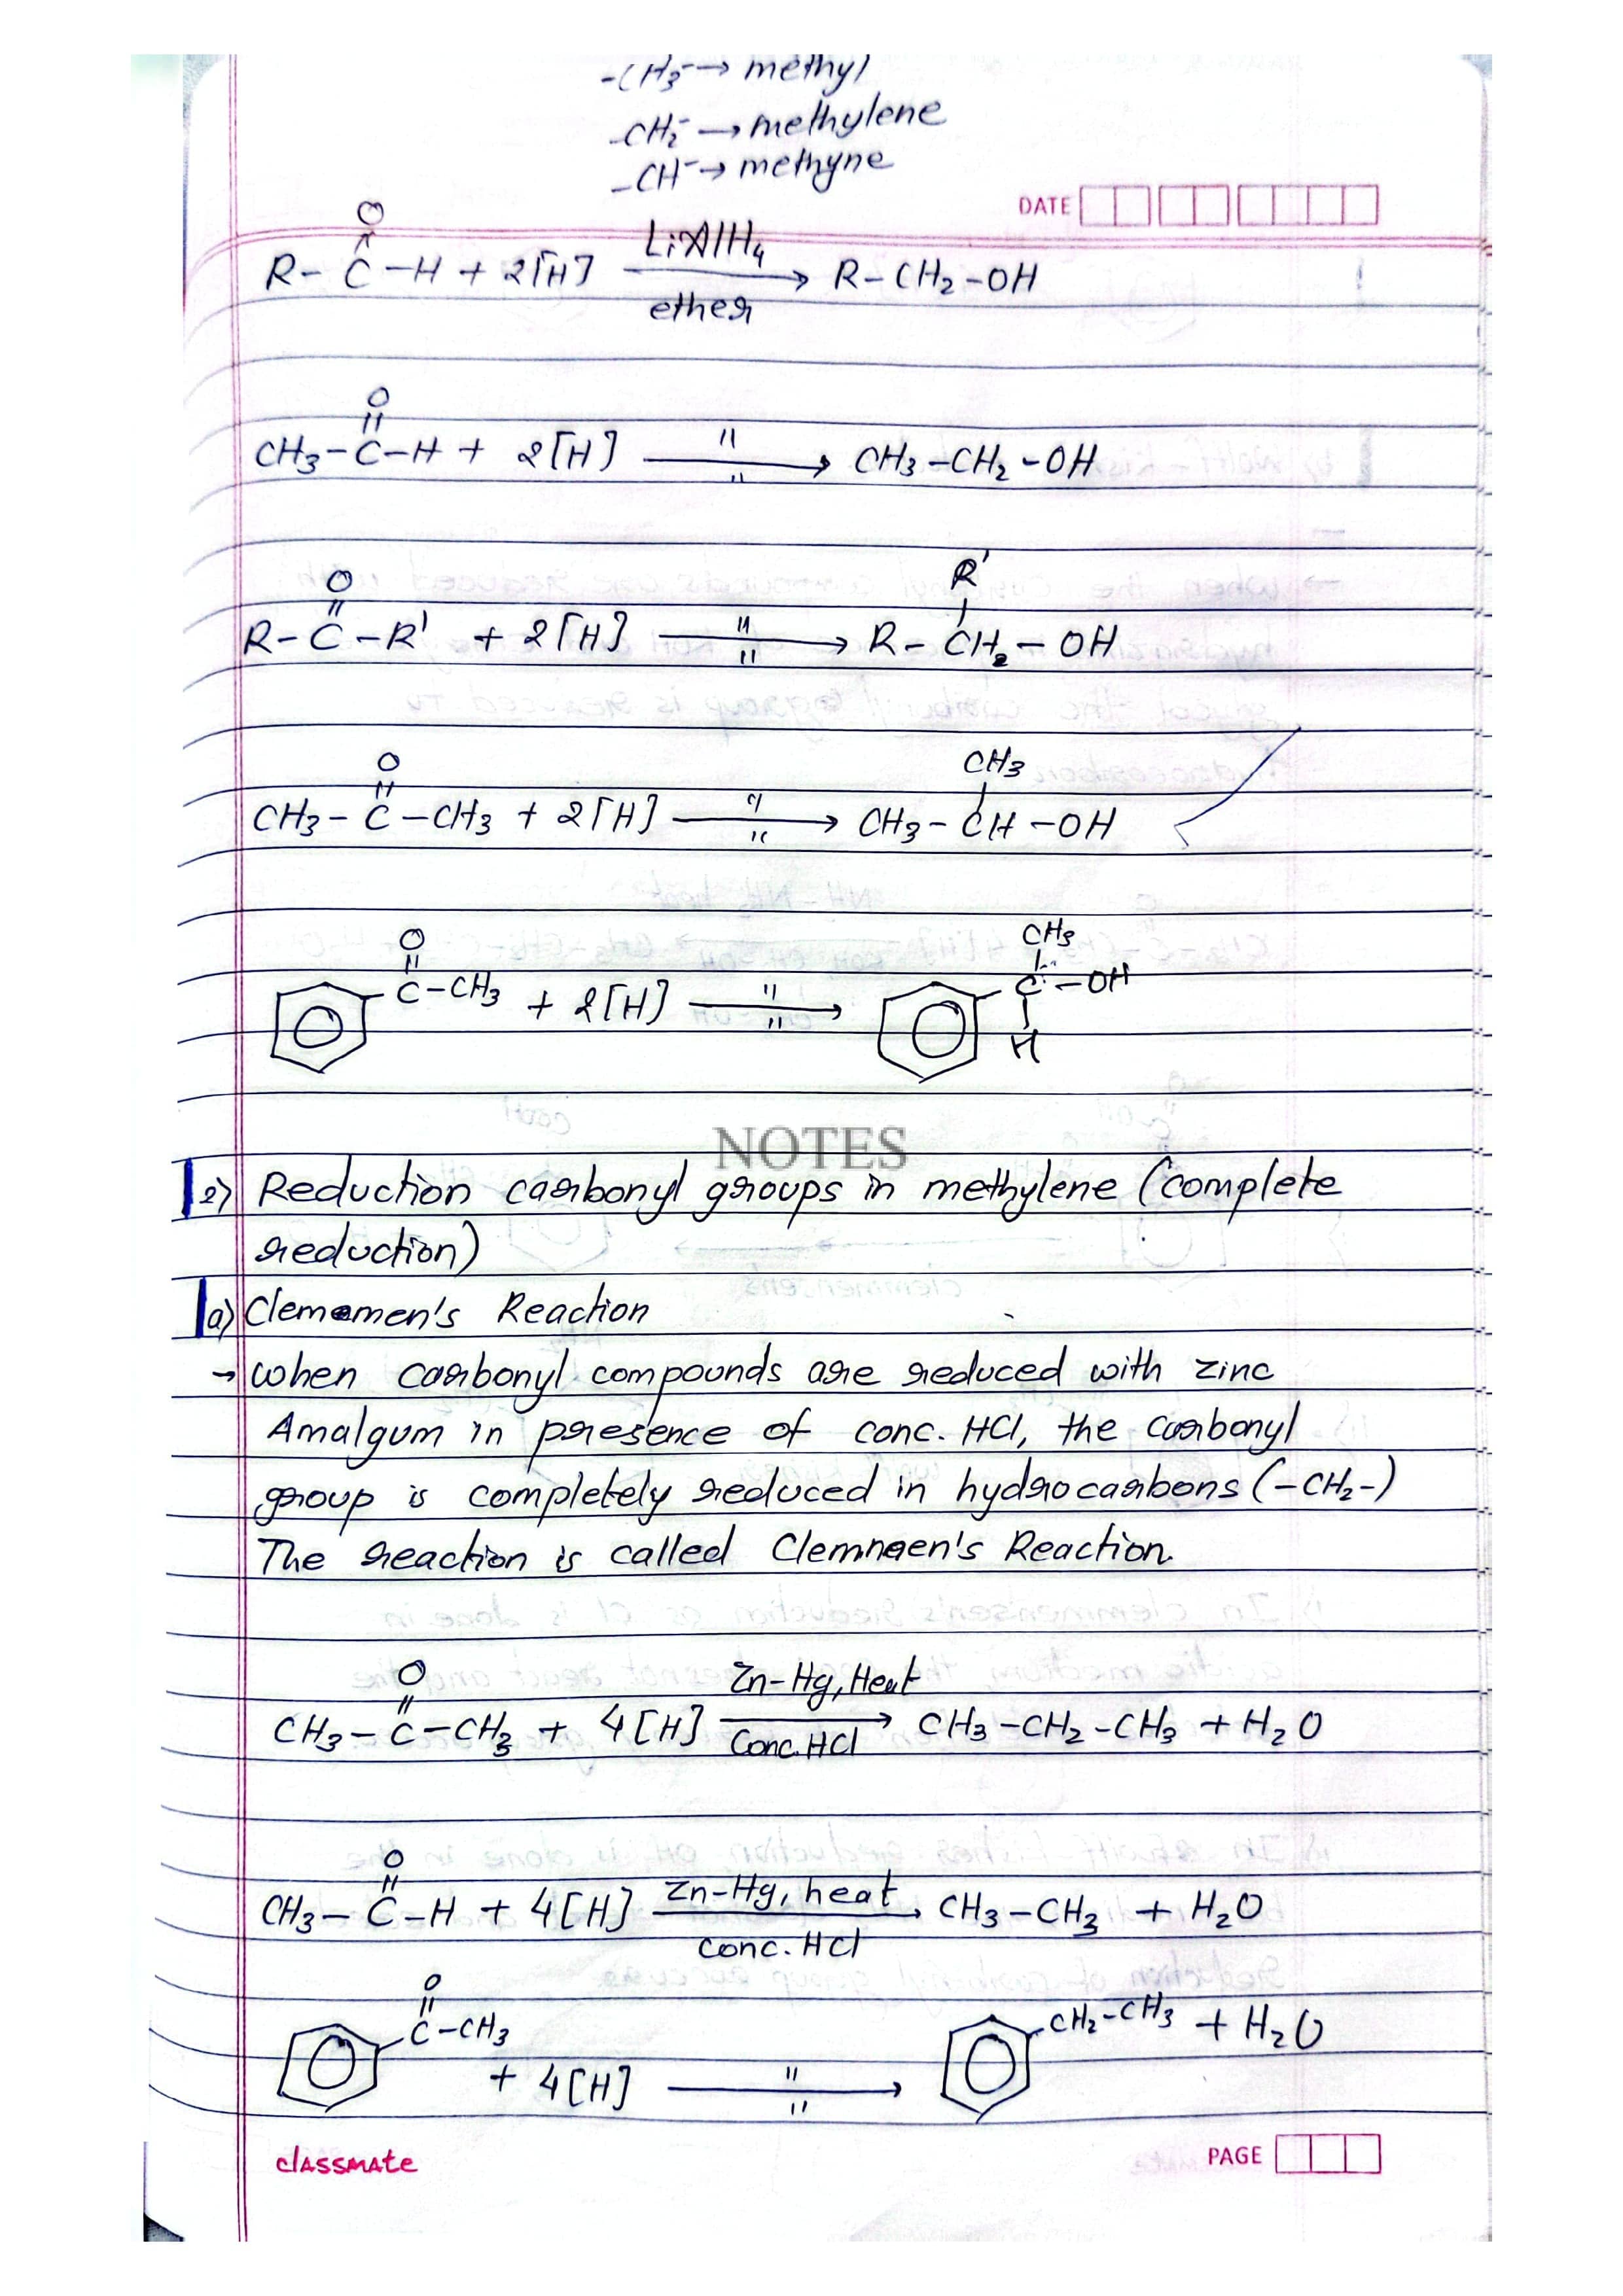 -CH3- → methyl
-CH2- → methylene
-CH- → methyne
DATE
O
R - C - H + 2[H] LiAlH4 → R - CH2 - OH
ether
O
CH3 - C - H + 2[H] " → CH3 - CH2 - OH
"
O R'
R - C - R' + 2[H] " → R - CH2 - OH
"
O CH3
CH3 - C - CH3 + 2[H] " → CH3 - CH - OH
"
O CH3
C - CH3 + 2[H] " → C - OH
" H
NOTES
2) Reduction carbonyl groups in methylene (complete
reduction)
a) Clememen's Reaction
→ when carbonyl compounds are reduced with zinc
Amalgum in presence of conc. HCl, the carbonyl
group is completely reduced in hydrocarbons (-CH2-)
The reaction is called Clemnen's Reaction.
O
CH3 - C - CH3 + 4[H] Zn-Hg, Heat → CH3 - CH2 - CH3 + H2O
Conc. HCl
O
CH3 - C - H + 4[H] Zn-Hg, heat → CH3 - CH3 + H2O
conc. HCl
O
C - CH3 CH2 - CH3 + H2O
+ 4[H] " →
"
classmate
PAGE